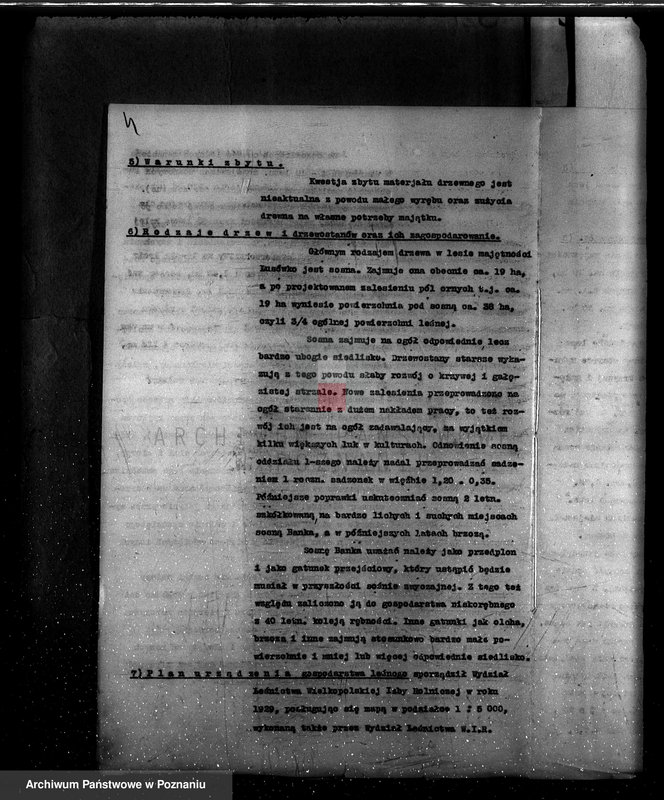 5) Warunki zbytu.
Kwestja zbytu materjału drzewnego jest
nieaktualna z powodu małego wyrębu oraz zużycia
drewna na własne potrzeby majątku.
6) Rodzaje drzew i drzewostanów oraz ich zagospodarowanie.
Głównym rodzajem drzewa w lesie majętności
jest sosna. Zajmuje ona obecnie ca. 19 ha,
a po projektowanem zalesieniu pól ornych t.j. ca.
19 ha wyniesie powierzchnia pod sosną ca. 38 ha,
czyli 3/4 ogólnej powierzchni leśnej.
Sosna zajmuje na ogół odpowiednie lecz
bardzo ubogie siedlisko. Drzewostany starsze wyka-
zują z tego powodu słaby rozwój o krzywej i gałę-
zistej strzale. Nowe zalesienia przeprowadzono na
ogół starannie z dużem nakładem pracy, to też roz-
wój ich jest na ogół zadawalający, za wyjątkiem
kilku większych luk w kulturach. Odnowienie sosną
oddziału 1-szego należy nadal przeprowadzać sadze-
niem 1 roczn. sadzonek w więźbie 1,20 . 0,35.
Późniejsze poprawki uskuteczniać sosną 2 letn.
szkółkowaną, na bardzo lichych i suchych miejscach
sosną Banka, a w późniejszych latach brzozą.
Sosnę Banka uważać należy jako przedplon
i jako gatunek przejściowy, który ustąpić będzie
musiał w przyszłości sośnie zwyczajnej. Z tego też
względu zaliczono ją do gospodarstwa niskorębnego
z 40 letn. koleją rębności. Inne gatunki jak olcha,
brzoza i inne zajmują stosunkowo bardzo małe po-
wierzchnie i mniej lub więcej odpowiednie siedlisko.
7) Plan urządzenia gospodarstwa leśnego sporządził Wydział
Leśnictwa Wielkopolskiej Izby Rolniczej w roku
1929, posługując się mapą w podziałce 1 : 5 000,
wykonaną także przez Wydział Leśnictwa W.I.R.
ARCH
Archiwum Państwowe w Poznaniu